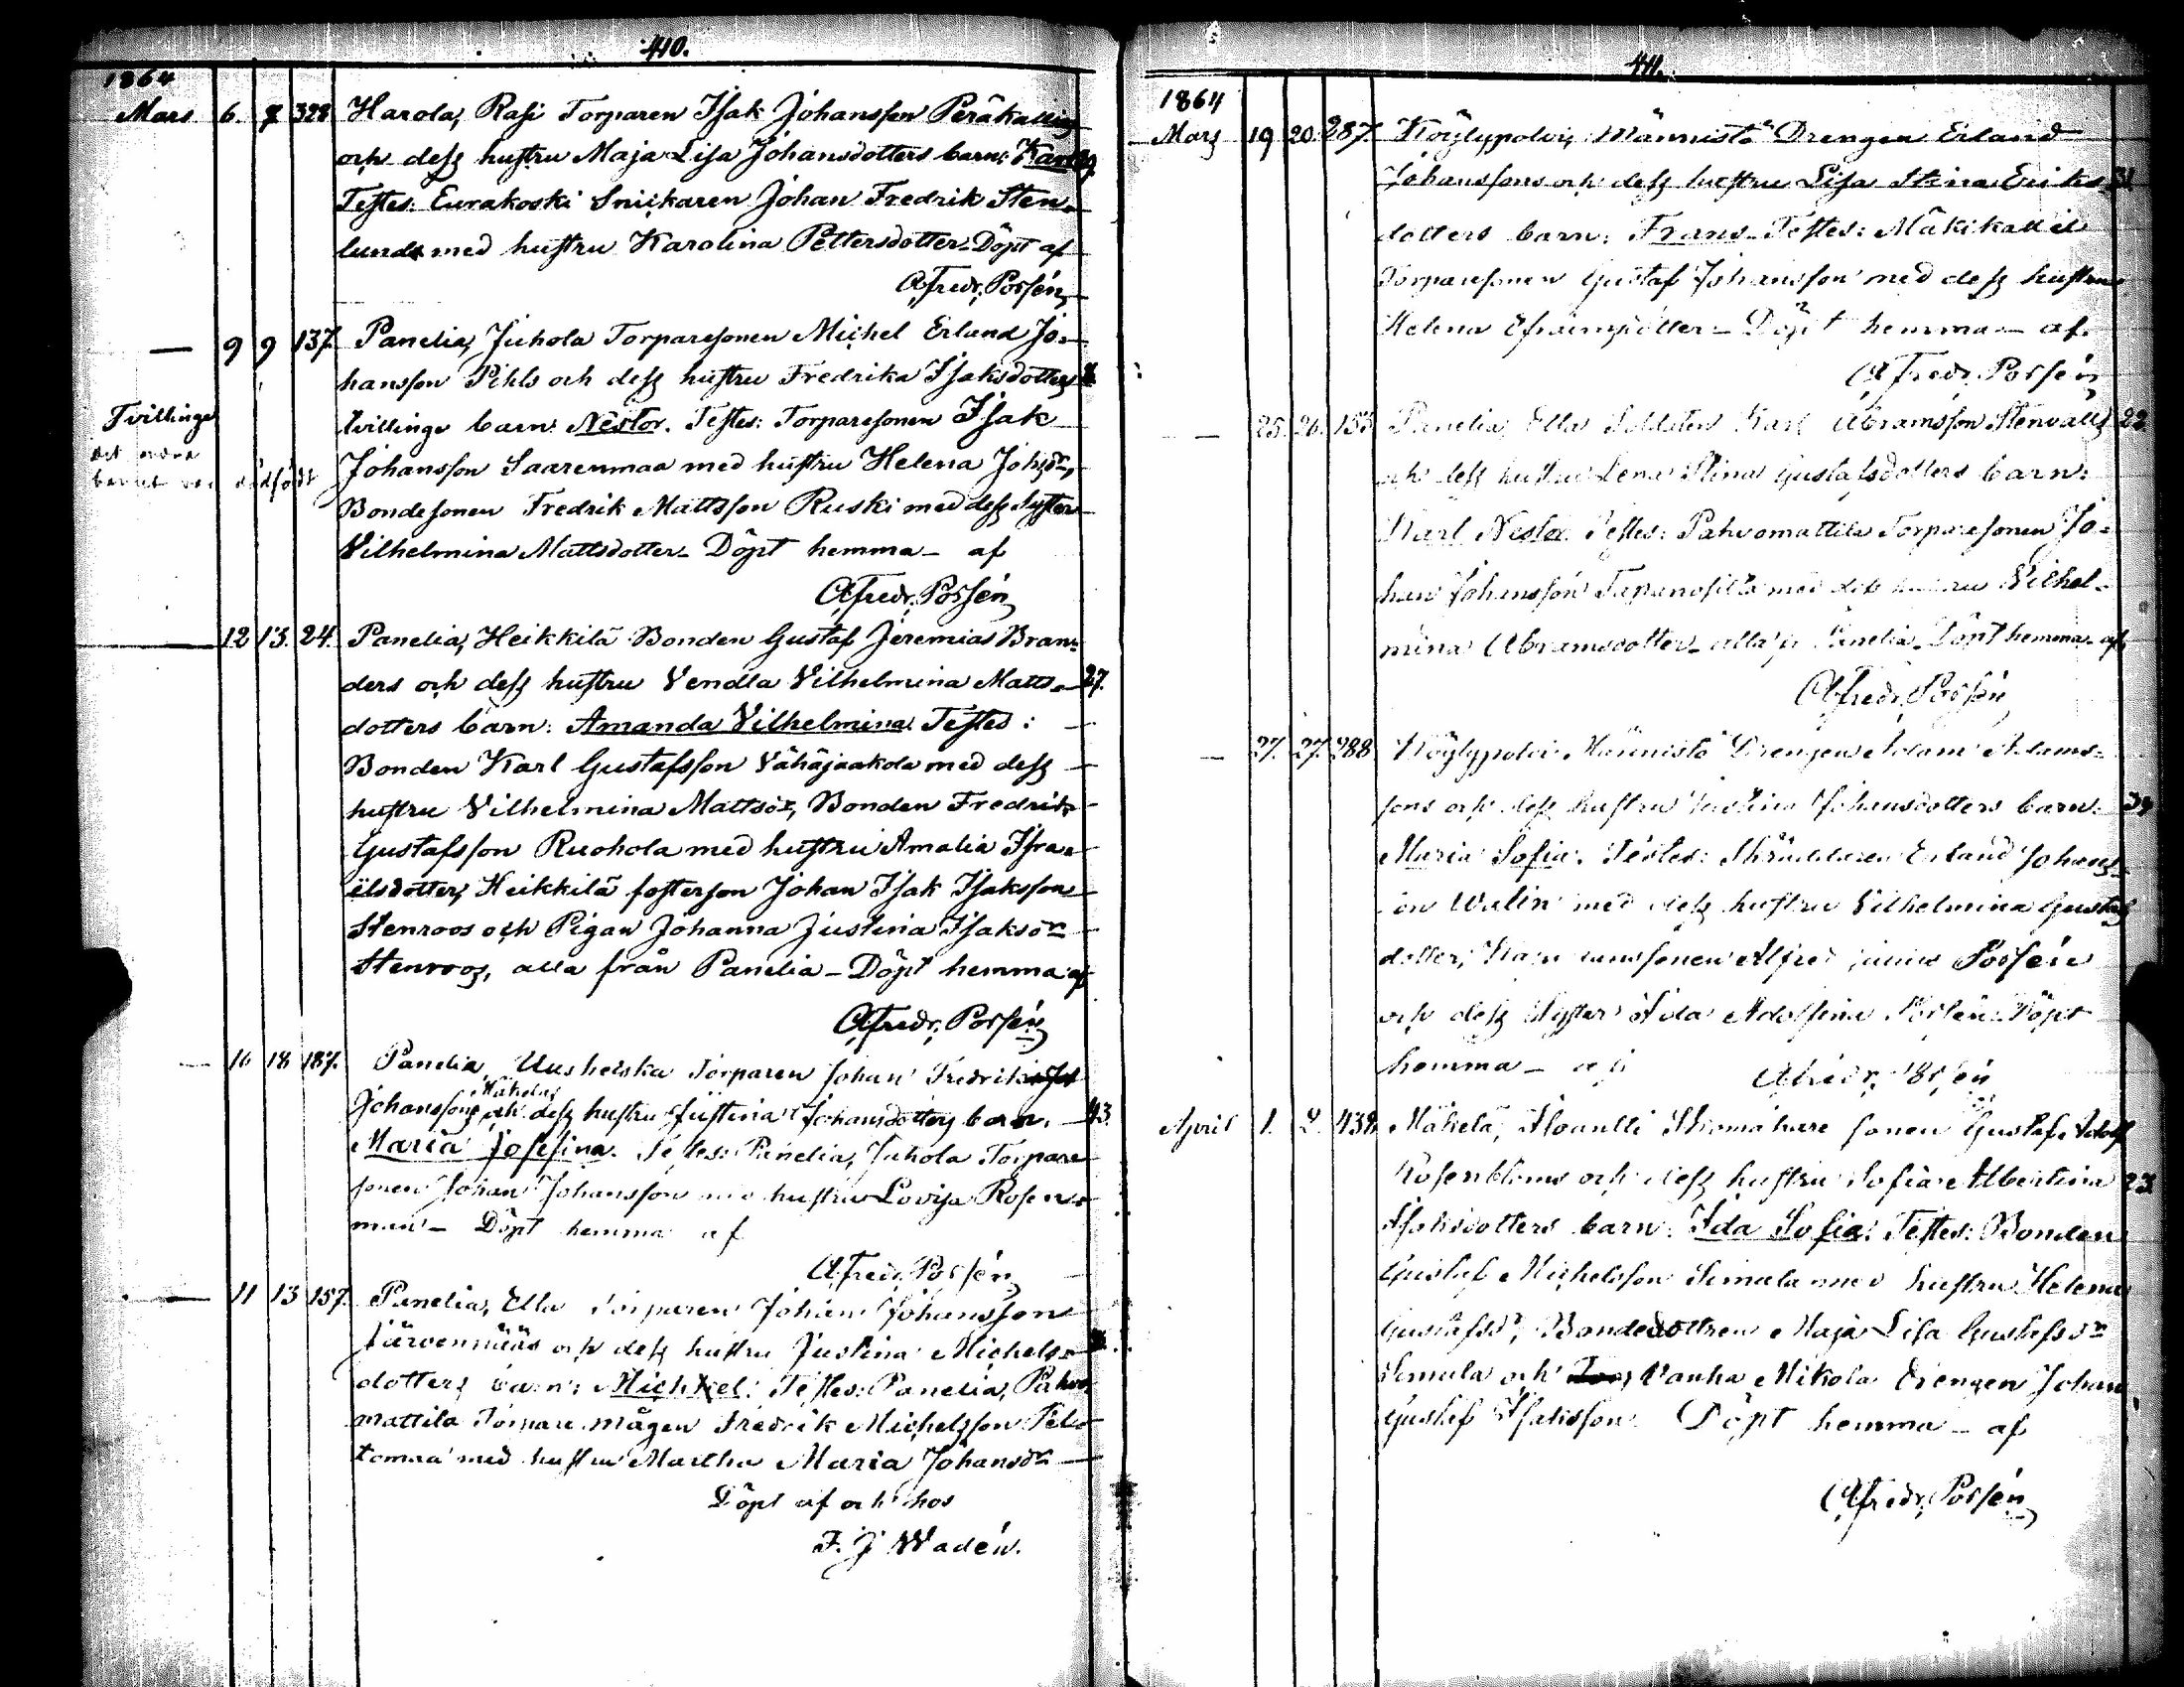 410.
1864
Mars 6. 7 328 Harola, Rasi Torparen Isak Johansson Peräkallios
och dess hustru Maja Lisa Johansdotters barn: Karl
Testes: Eurakoski Snickaren Johan Fredrik Sten-
lund med hustru Karolina Pettersdotter_ Döpt af
A Fredr. Possén
— 9 9 137. Panelia, Juhola Torparesonen Michel Erland Jo-
hansson Pihls och dess hustru Fredrika Isaksdotters
Tvillinge
tvillinge barn: Nestor. Testes: Torparesonen Isak
det andra
barnet var dödfödt
Johansson Saarenmaa med hustru Helena Johsdr,
Bondesonen Fredrik Mattsson Ruski med dess Syster
Vilhelmina Mattsdotter_ Döpt hemma_ af
A Fredr. Possén
— 12 13. 24. Panelia, Heikkilä Bonden Gustaf Jeremias Bran-
ders och dess hustru Vendla Vilhelmina Matts- 27.
dotters barn: Amanda Vilhelmina. Testes:
Bonden Karl Gustafsson Vähäjaakola med dess
hustru Vilhelmina Mattsdr, Bonden Fredrik
Gustafsson Ruohola med hustru Amalia Isra-
elsdotter, Heikkilä fosterson Johan Isak Isaksson
Stenroos och Pigan Johanna Justina Isaksdr
Stenroos, alla från Panelia_ Döpt hemma af
A Fredr. Possén
— 16 18 187. Panelia, Torparen Johan Fredrik
Mäkelä
Johanssons och dess hustru Justina Johansdotters barn. 43.
Maria Josefina. Testes: Panelia, Juhola Torpare
sonen Johan Johansson med hustru Lovisa Rosen-
man_ Döpt hemma af
A Fredr. Possén
— 11 13 157. Panelia, Ella Torparen Johan Johansson
Järvenpääs och dess hustru Justina Michels-
dotters barn: Michael. Testes: Panelia, Pahvo
mattila Torpare mågen Fredrik Michelsson Pel-
tomaa med hustru Martha Maria Johansdr
Döpt af och hos
F. J Wadén.
411.
1864
Mars 19 20. 287. Köylypolvi, Männistö Drengen Erland
Johanssons och dess hustru Lisa Stina Eriks- 31.
dotters barn: Frans_ Testes: Mäkikallil
Torparesonen Gustaf Johansson med dess hustru
Helena Efraimsdotter_ Döpt hemma_ af.
A Fredr. Possén
— 25. 26. 155 Panelia, Ella Soldaten Karl Abramsson Stenvalls 22.
och dess hustru Lena Stina Gustafsdotters barn:
Karl Nestor. Testes: Pahvomattila Torparesonen Jo-
han Johansson med dess hustru Vilhel-
mina Abramsdotter_ alla fr Panelia_ Döpt hemma_ af
A Fredr. Possén
— 27. 27. 288 Köylypolvi Männistö Drengen Adam Adams-
sons och dess hustru Justina Johansdotters barn: 34
Maria Sofia. Testes: Skräddaren Erland Johans-
son Walin med dess hustru Vilhelmina Gustafs
dotter, sonen Alfred Julius Possén
och dess Syster Ida Adolfina Possén. Döpt
hemma_ af A Fredr. Possén
April 1. 2. 438 Mäkelä, Alvantti Skomakare sonen Gustaf Adolf
Rosenbloms och dess hustru Sofia Albertina 23
Isaksdotters barn: Ida Sofia: Testes: Bonden
Gustaf Michelsson Simula med hustru Helena
Gustafsdr, Bondedottren Maja Lisa Gustafsdr
Simula och Vanha Mikola Drengen Johan
Gustaf Isaksson. Döpt hemma_ af
A Fredr. Possén